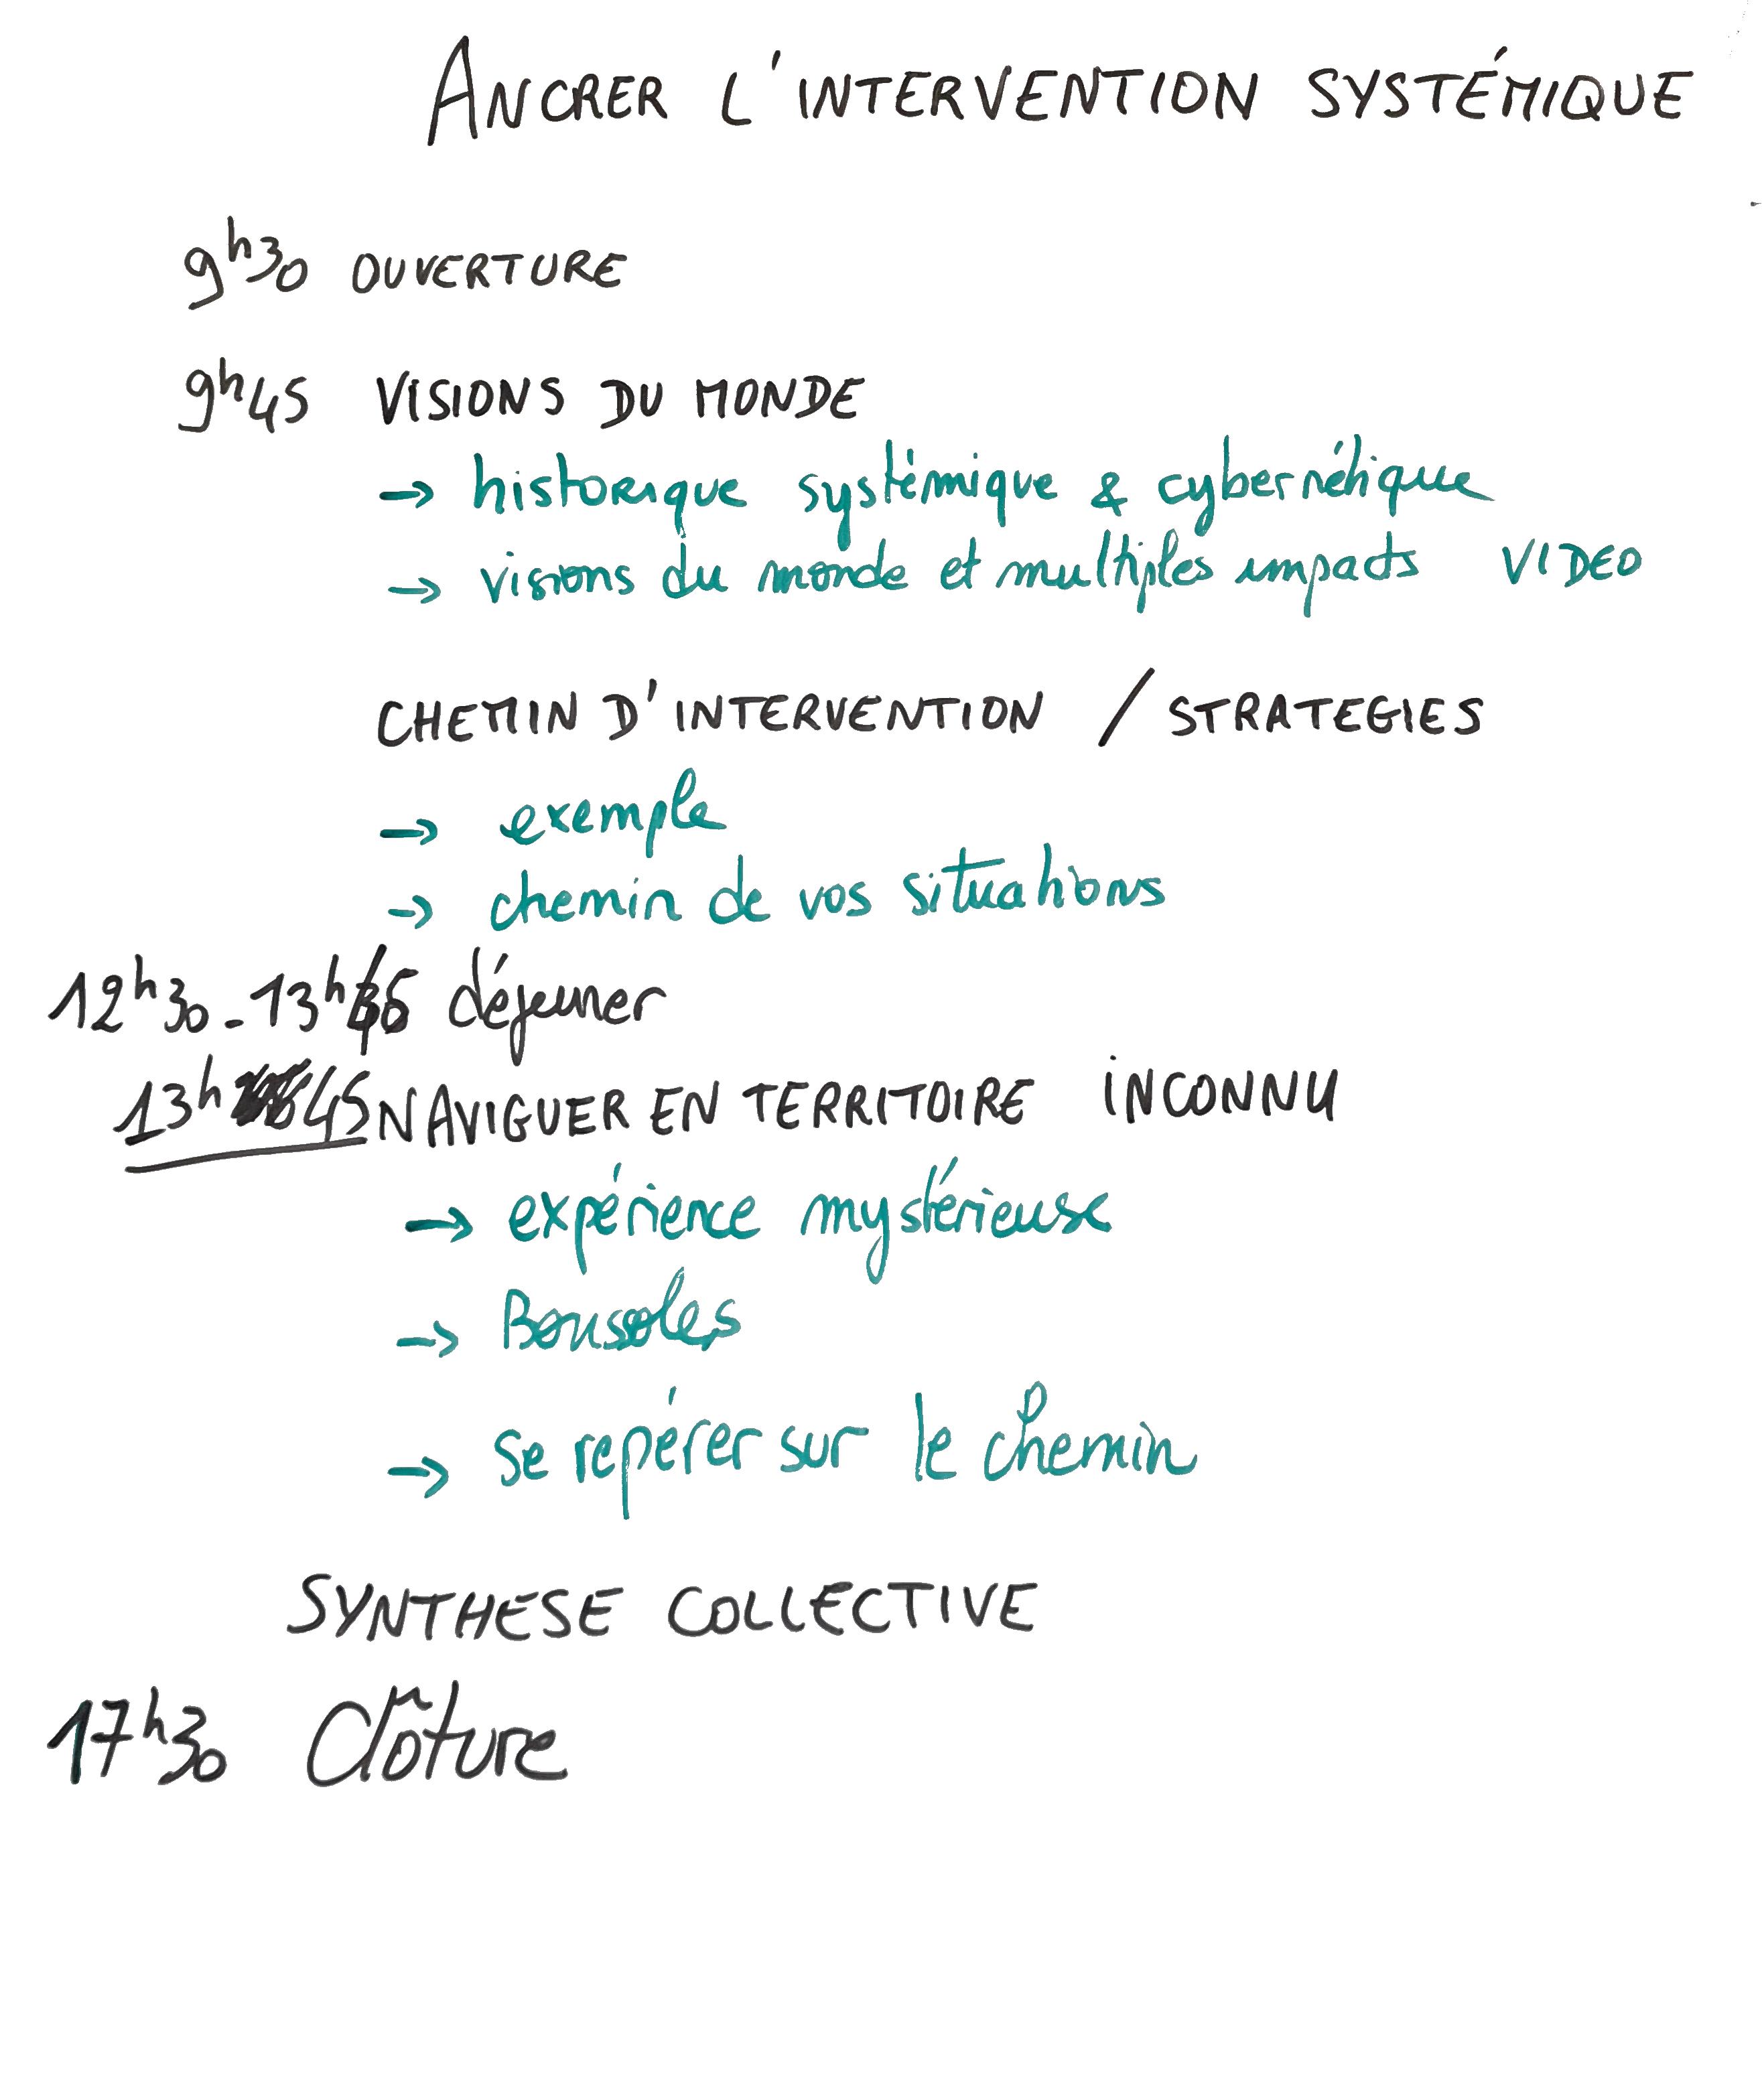 ANCRER L'INTERVENTION SYSTÉMIQUE
9h30 OUVERTURE
9h45 VISIONS DU MONDE
→ historique systémique & cybernétique
→ visions du monde et multiples impacts VIDEO
CHEMIN D'INTERVENTION / STRATEGIES
→ exemple
→ chemin de vos situations
12h30-13h déjeuner
13h 45 NAVIGUER EN TERRITOIRE INCONNU
→ expérience mystérieuse
→ Boussoles
→ se repérer sur le chemin
SYNTHESE COLLECTIVE
17h30 Clôture